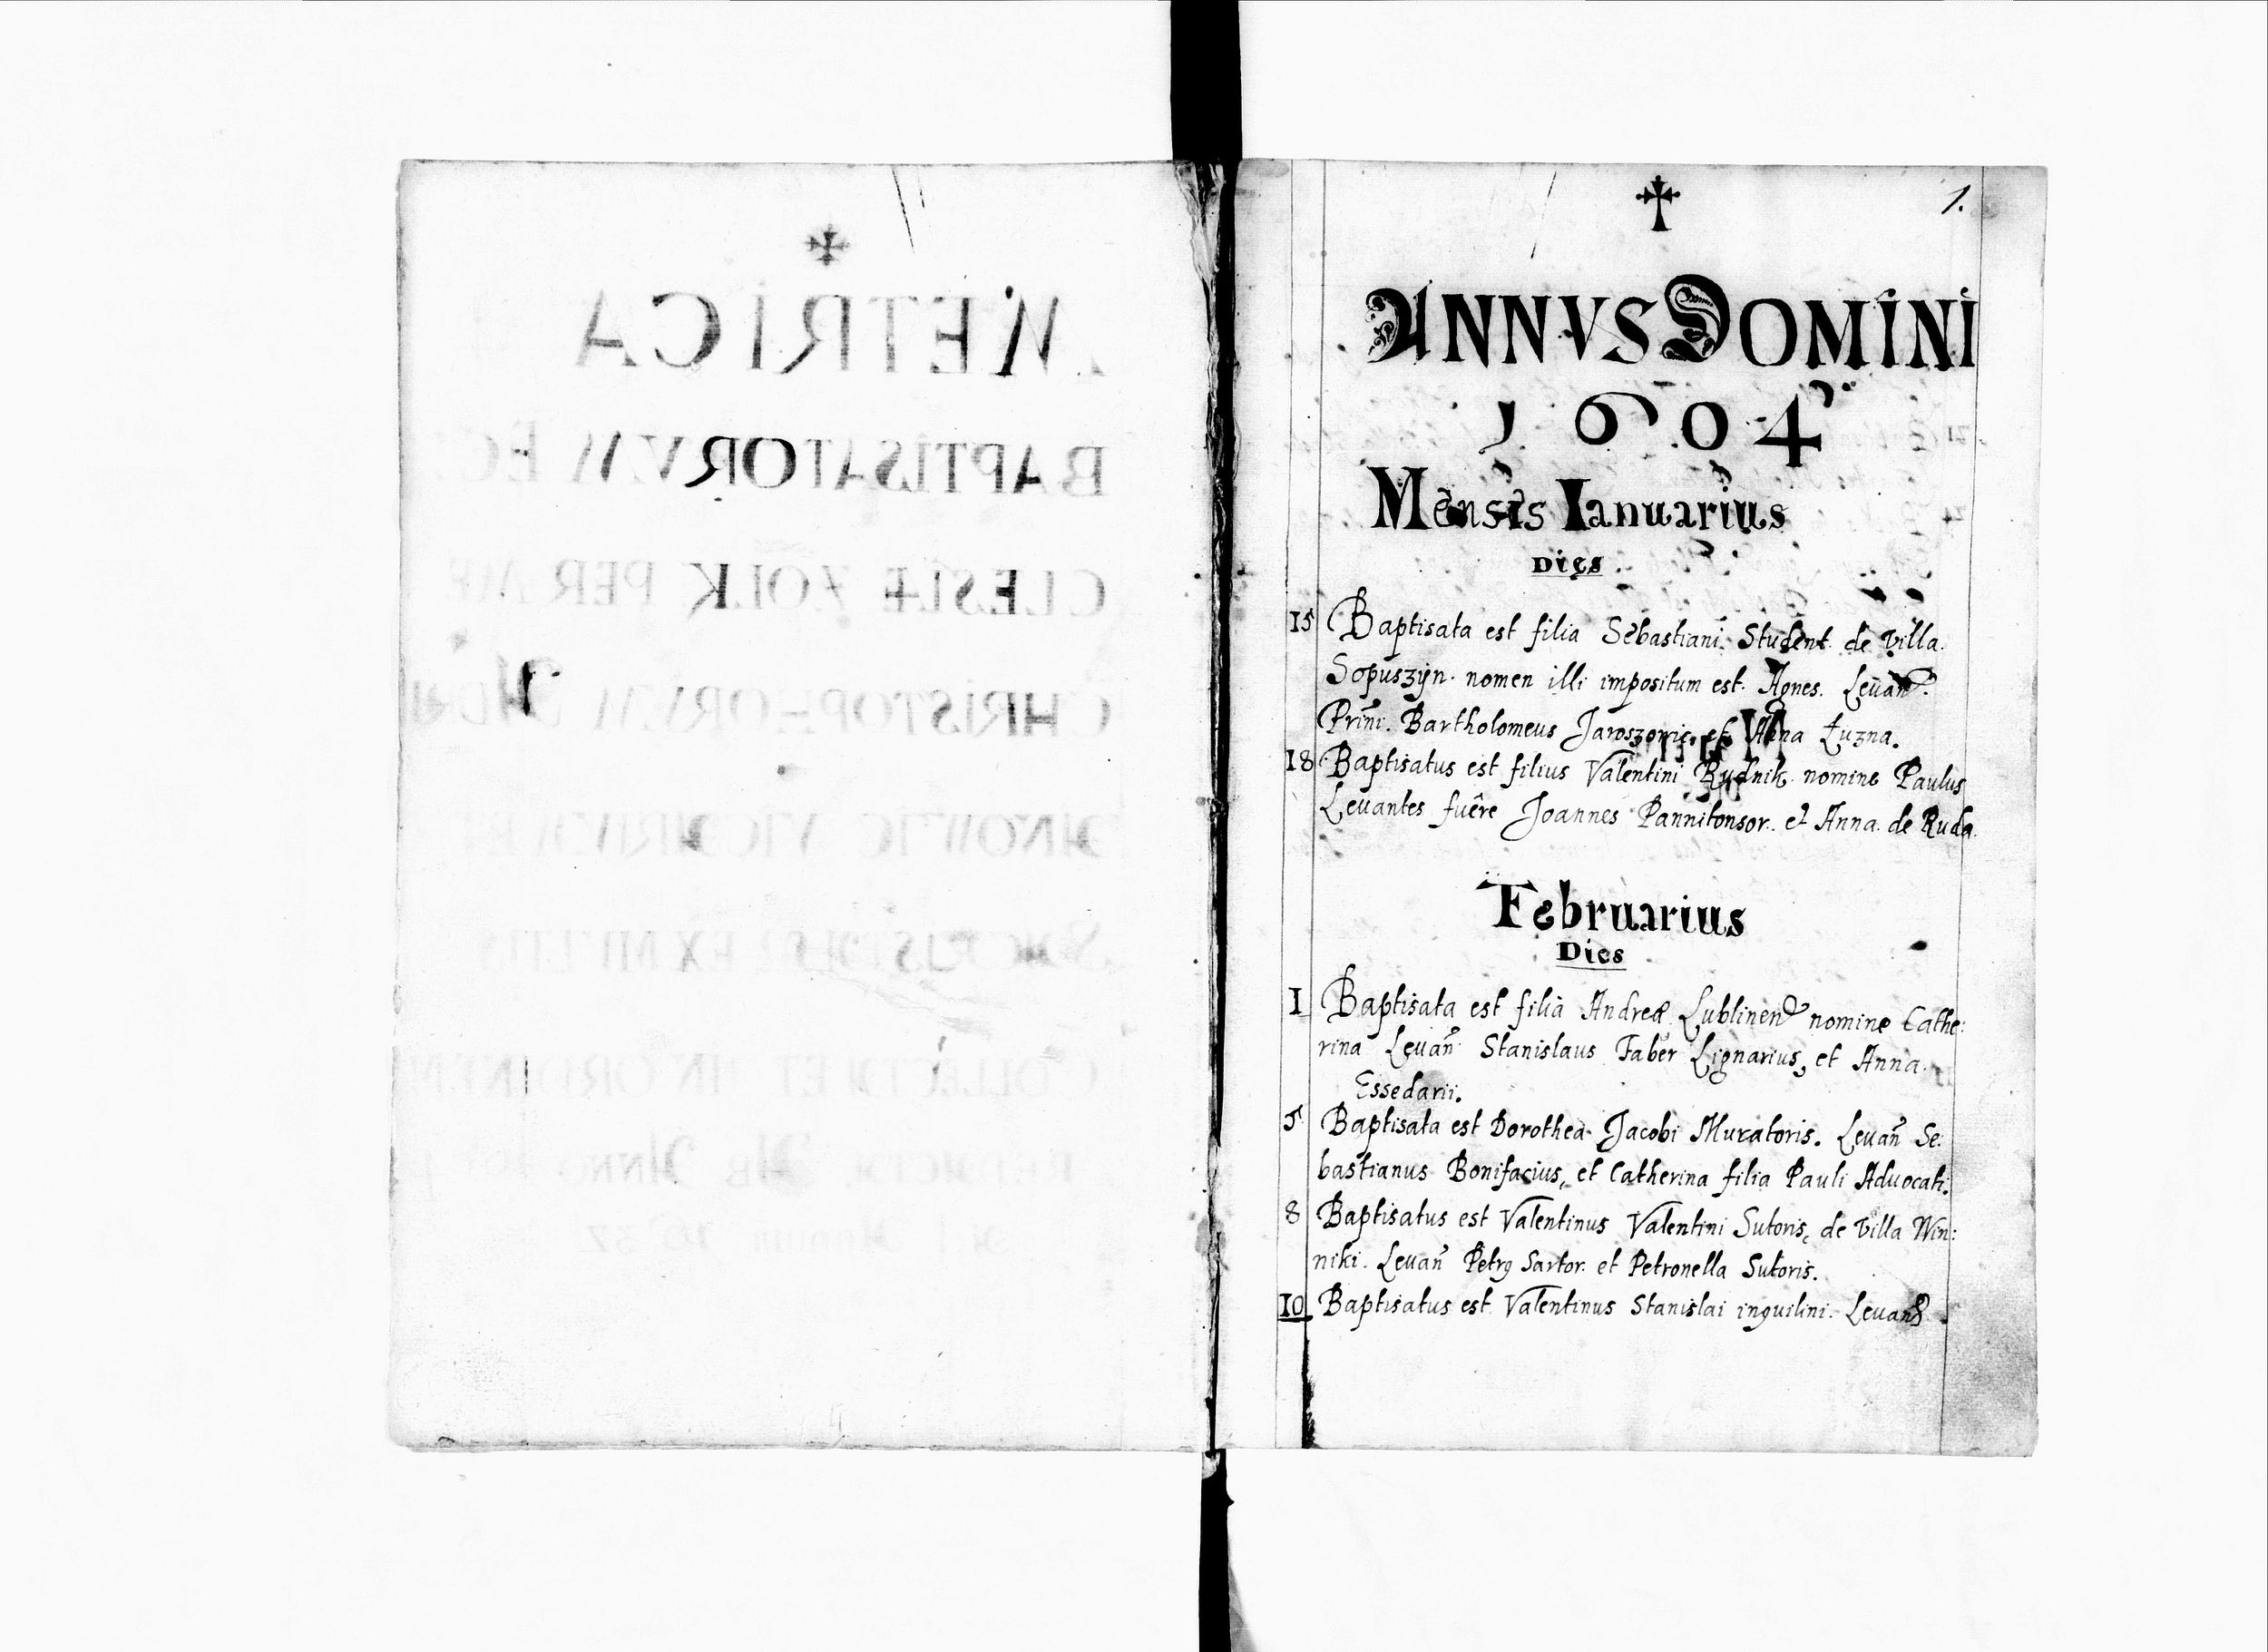 METRICA
BAPTISATORVM EC
CLESIÆ ZOLK PER ME
CHRISTOPHORVM
EX MVLTIS
IN ORDINEM
AB ANNO
1.
ANNVS DOMINI
1604
Mensis Ianuarius
Dies
15 Baptisata est filia Sebastiani Student de villa
Sopuszyn. nomen illi impositum est. Agnes. Levan̄.
Prim̄i. Bartholomeus Jaroszowic. et Anna Łuzna.
18 Baptisatus est filius Valentini Rudnik. nomine Paulus
Leuantes fuêre Joannes Pannitonsor. et Anna de Ruda.
Februarius
Dies
1 Baptisata est filia Andreæ Lublinen nomine Cathe:
rina Leuan̄ Stanislaus Faber Lignarius, et Anna
Essedarii.
5 Baptisata est Dorothea Jacobi Muratoris. Leuan̄ Se:
bastianus Bonifacius, et Catherina filia Pauli Aduocati.
8 Baptisatus est Valentinus Valentini Sutoris, de villa Win:
niki. Leuan̄ Petrꝯ Sartor. et Petronella Sutoris.
10 Baptisatus est Valentinus Stanislai inquilini. Leuan